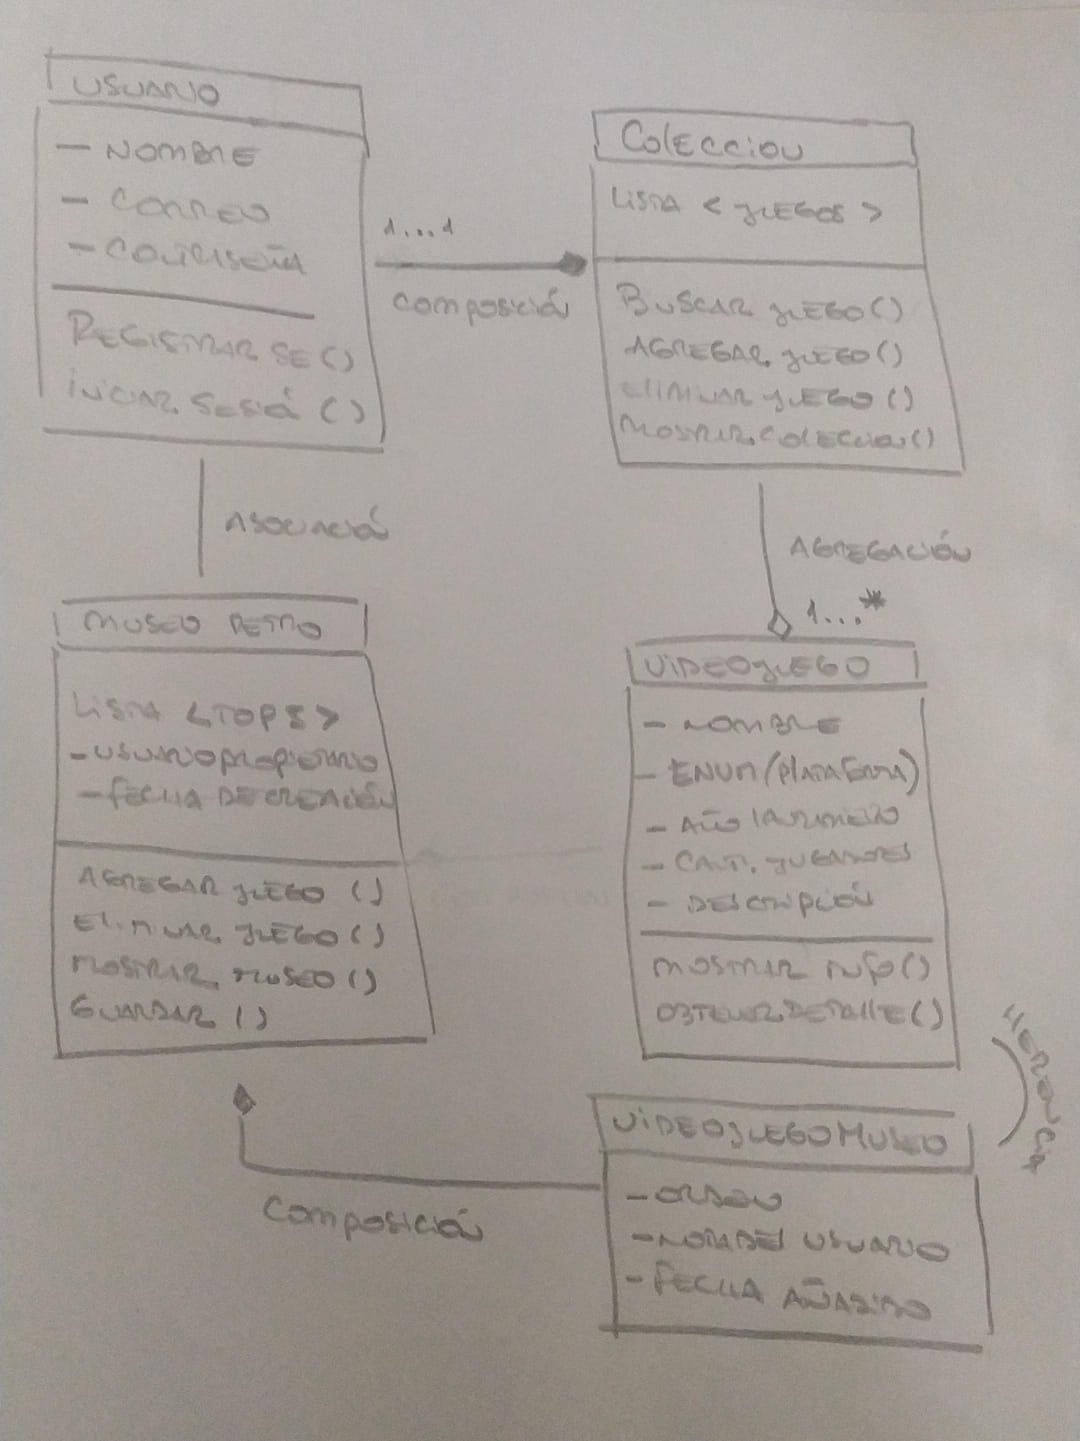 USUARIO
- NOMBRE
- CORREO
- CONTRASEÑA
REGISTRARSE()
INICIAR SESIÓ()
1...1
COMPOSICIÓN
COLECCION
LISTA < JUEGOS >
BUSCAR JUEGO()
AGREGAR JUEGO()
ELIMINAR JUEGO()
MOSTRAR COLECCION()
ASOCIACIÓN
AGREGACIÓN
1...*
MUSEO RETRO
LISTA <TOP 5>
- USUARIO PROPIETARIO
- FECHA DE CREACIÓN
AGREGAR JUEGO ()
ELIMINAR JUEGO ()
MOSTRAR MUSEO ()
GUARDAR ()
VIDEOJUEGO
- NOMBRE
- ENUM (PLATAFORMA)
- AÑO LANZAMIENTO
- CANT. JUGADORES
- DESCRIPCIÓN
MOSTRAR INFO()
OBTENER DETALLE()
HERENCIA
COMPOSICIÓN
VIDEOJUEGO MUSEO
- ORDEN
- NOTA DEL USUARIO
- FECHA AÑADIDO